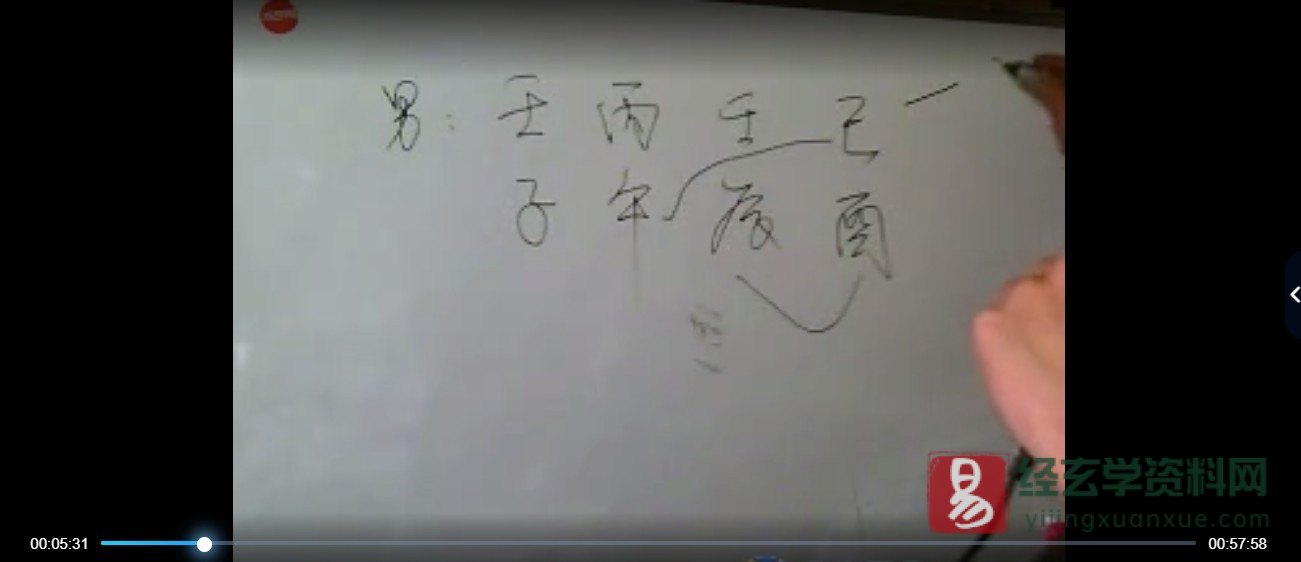 男: 壬 丙 壬 己
子 午 辰 酉
易经玄学资料网
yijingxuanxue.com
00:05:31 00:57:58